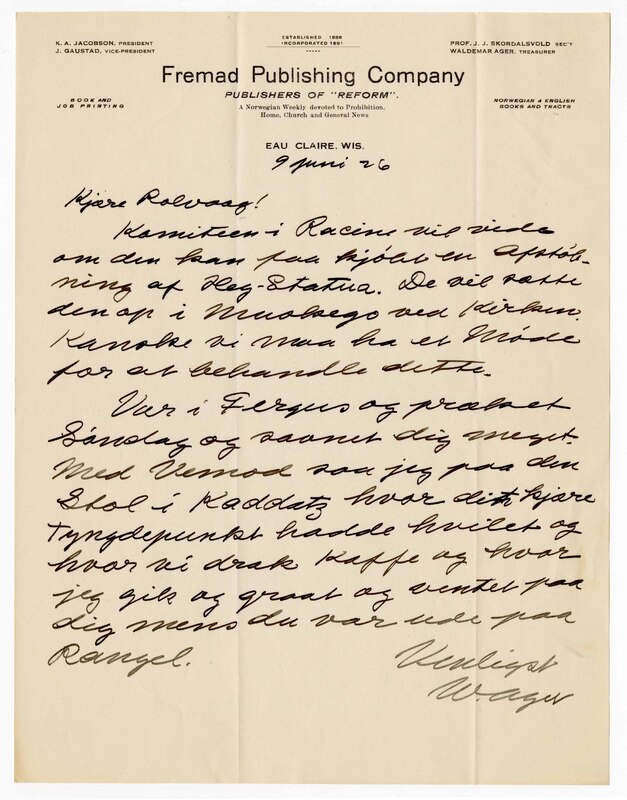 K. A. JACOBSON, PRESIDENT
J. GAUSTAD, VICE-PRESIDENT
ESTABLISHED 1886
INCORPORATED 1891
PROF. J. J. SKORDALSVOLD SEC'Y
WALDEMAR AGER, TREASURER
Fremad Publishing Company
PUBLISHERS OF "REFORM".
BOOK AND
JOB PRINTING
A Norwegian Weekly devoted to Prohibition,
Home, Church and General News
NORWEGIAN & ENGLISH
BOOKS AND TRACTS
EAU CLAIRE, WIS.
9 juni 26
Kjære Rolvaag!
Komiteen i Racine vil vide
om den kan faa kjöbt en Afstöb-
ning af Heg-Statua. De vil sætte
den op i Muskego ved Kirken.
Kanske vi maa ha et Möde
for at behandle dette.
Var i Fergus og præket
Söndag og savnet dig meget.
Med Vemod saa jeg paa den
Stol i Kaddatz hvor dit kjære
Tyngdepunkt hadde hvilet og
hvor vi drak Kaffe og hvor
jeg gik og graat og ventet paa
dig mens du var ude paa
Rangel.
Venligst
W. Ager